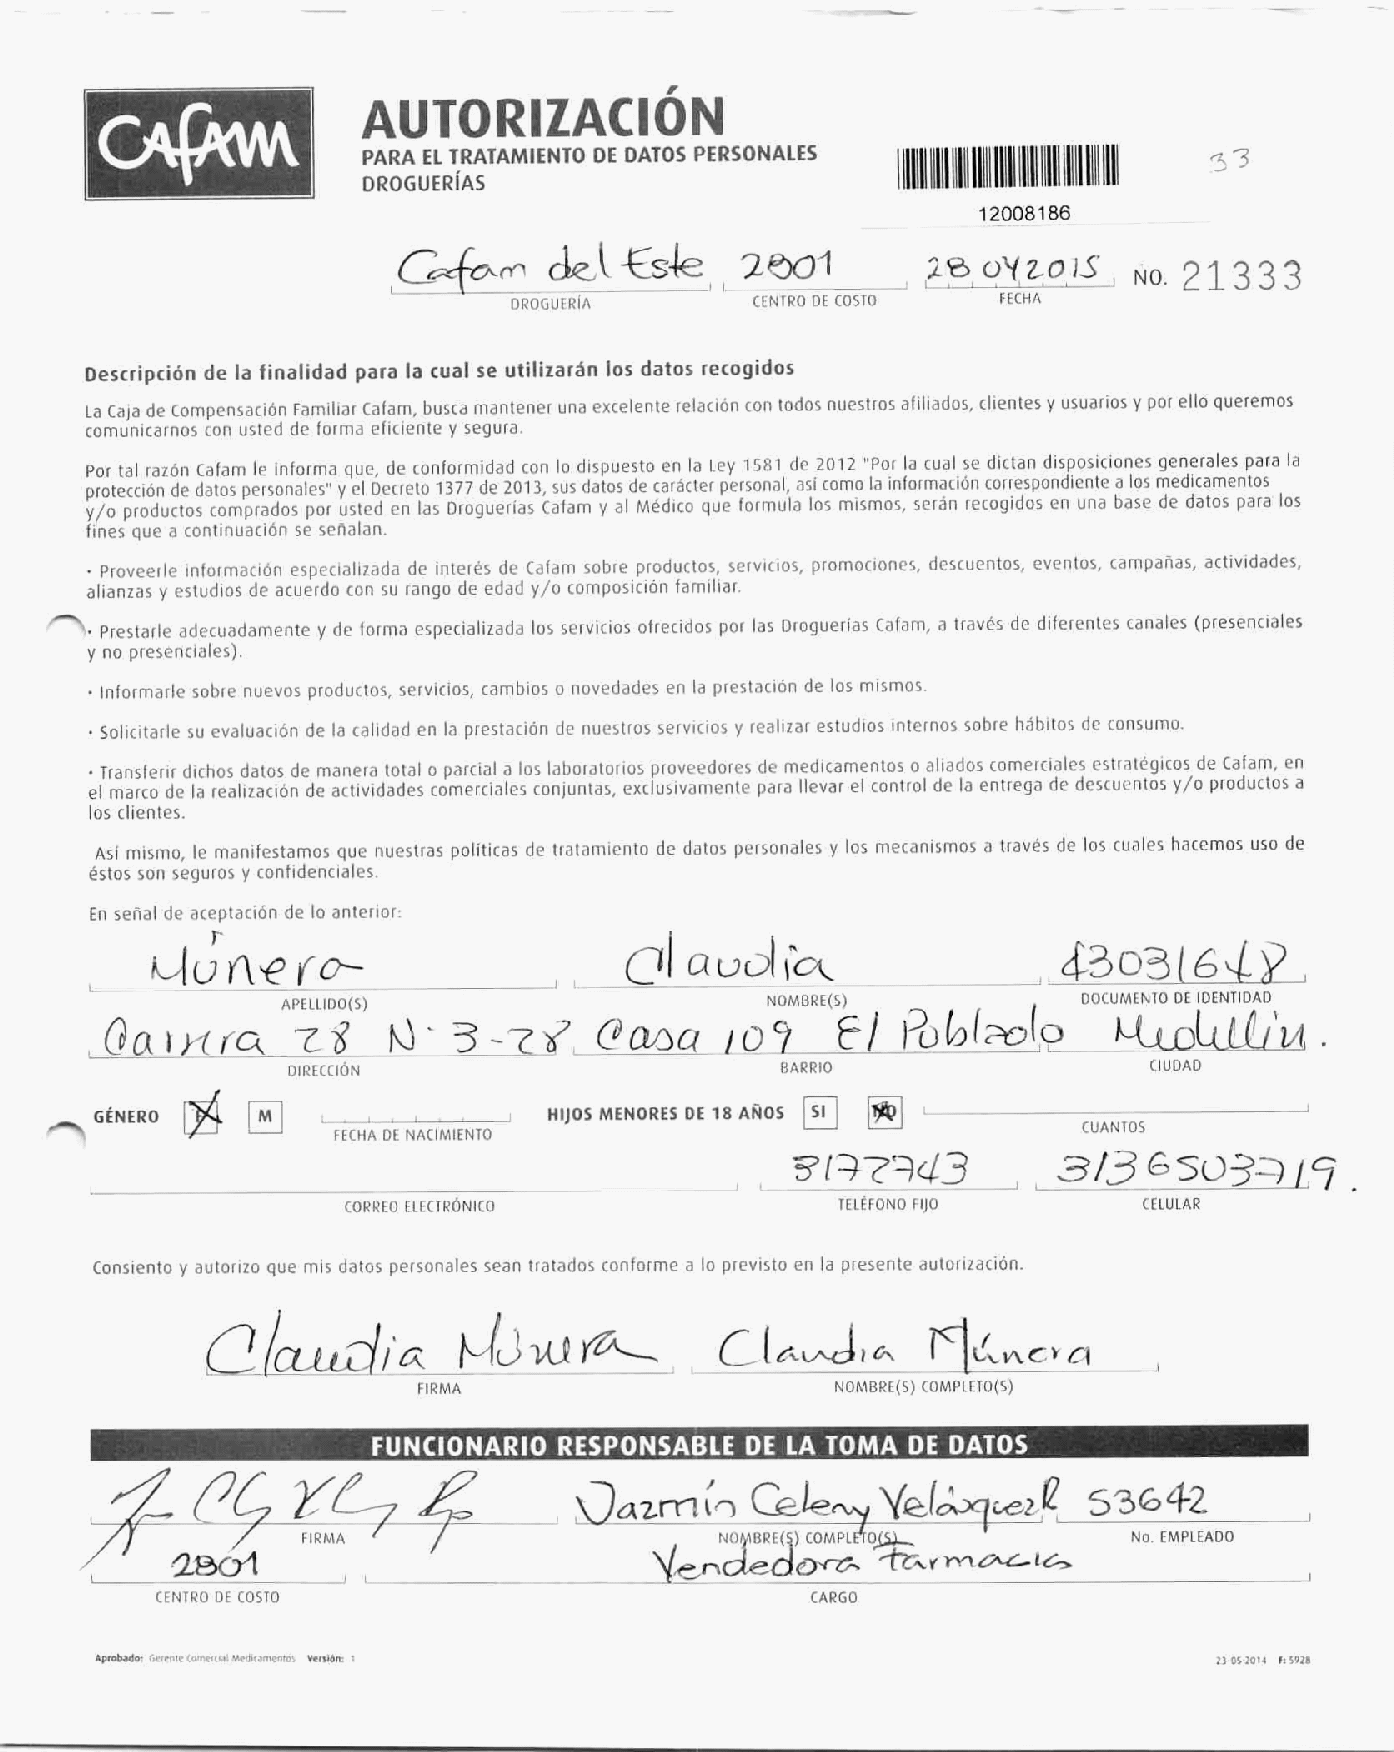 Cafam
AUTORIZACIÓN
PARA EL TRATAMIENTO DE DATOS PERSONALES
DROGUERÍAS
33
12008186
Cafam del Este 2801 28 04 2015 NO. 21333
DROGUERÍA CENTRO DE COSTO FECHA
Descripción de la finalidad para la cual se utilizarán los datos recogidos
La Caja de Compensación Familiar Cafam, busca mantener una excelente relación con todos nuestros afiliados, clientes y usuarios y por ello queremos
comunicarnos con usted de forma eficiente y segura.
Por tal razón Cafam le informa que, de conformidad con lo dispuesto en la Ley 1581 de 2012 "Por la cual se dictan disposiciones generales para la
protección de datos personales" y el Decreto 1377 de 2013, sus datos de carácter personal, así como la información correspondiente a los medicamentos
y/o productos comprados por usted en las Droguerías Cafam y al Médico que formula los mismos, serán recogidos en una base de datos para los
fines que a continuación se señalan.
· Proveerle información especializada de interés de Cafam sobre productos, servicios, promociones, descuentos, eventos, campañas, actividades,
alianzas y estudios de acuerdo con su rango de edad y/o composición familiar.
· Prestarle adecuadamente y de forma especializada los servicios ofrecidos por las Droguerías Cafam, a través de diferentes canales (presenciales
y no presenciales).
· Informarle sobre nuevos productos, servicios, cambios o novedades en la prestación de los mismos.
· Solicitarle su evaluación de la calidad en la prestación de nuestros servicios y realizar estudios internos sobre hábitos de consumo.
· Transferir dichos datos de manera total o parcial a los laboratorios proveedores de medicamentos o aliados comerciales estratégicos de Cafam, en
el marco de la realización de actividades comerciales conjuntas, exclusivamente para llevar el control de la entrega de descuentos y/o productos a
los clientes.
Así mismo, le manifestamos que nuestras políticas de tratamiento de datos personales y los mecanismos a través de los cuales hacemos uso de
éstos son seguros y confidenciales.
En señal de aceptación de lo anterior:
Múnera Claudia 43031648
APELLIDO(S) NOMBRE(S) DOCUMENTO DE IDENTIDAD
Carrera 28 N· 3-28 Casa 109 El Poblado Medellin.
DIRECCIÓN BARRIO CIUDAD
GÉNERO F M HIJOS MENORES DE 18 AÑOS SI NO
FECHA DE NACIMIENTO CUANTOS
3177743 3136503719.
CORREO ELECTRÓNICO TELÉFONO FIJO CELULAR
Consiento y autorizo que mis datos personales sean tratados conforme a lo previsto en la presente autorización.
Claudia Múnera Claudia Múnera
FIRMA NOMBRE(S) COMPLETO(S)
FUNCIONARIO RESPONSABLE DE LA TOMA DE DATOS
Jazmín Celeny Velásquez R 53642
FIRMA NOMBRE(S) COMPLETO(S) No. EMPLEADO
2801 Vendedora Farmacia
CENTRO DE COSTO CARGO
Aprobado: Gerente Comercial Medicamentos Versión: 1 23-05-2014 F: 5928